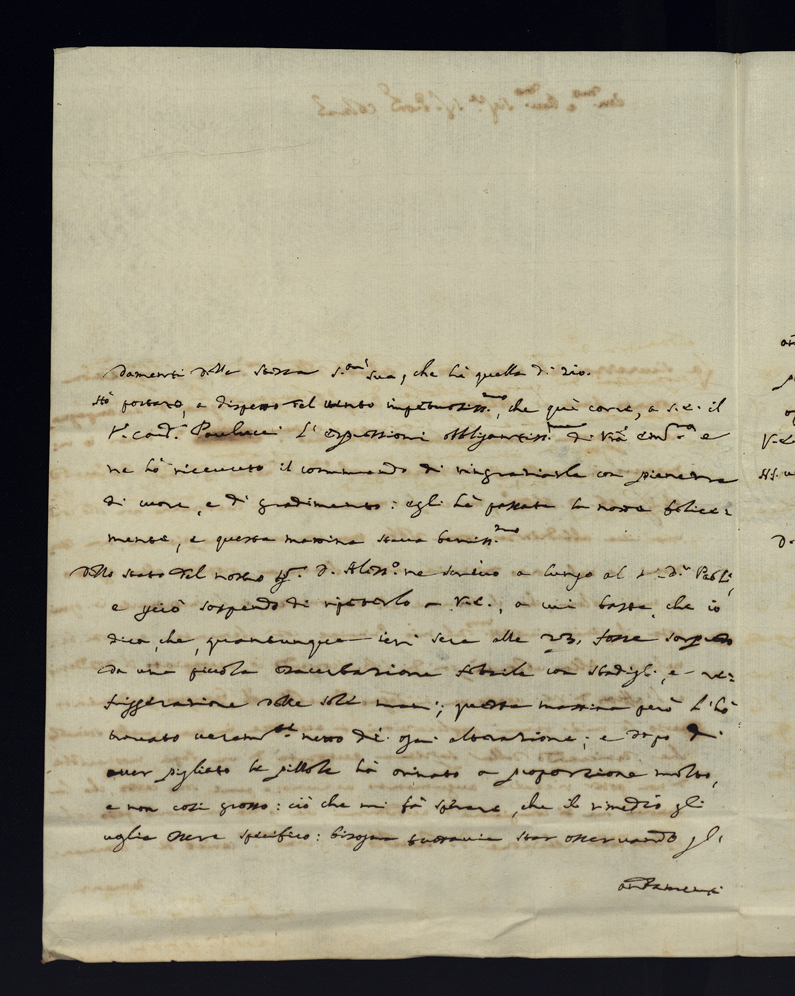 damenti della stessa S.tà Sua, che hà quella di zio.
Hò portato, a dispetto del vento impetuosiss.mo, che quì corre, a S.E. il
S.r Card.l Paulucci l'espressioni obbligantiss.me di V.ra Em.za e
ne hò ricevuto il commando di ringraziarla con pienezza
di cuore, e di gradimento: egli hà passata la notte felice=
mente, e questa mattina stava beniss.mo
Dello stato del nostro Sig.r D. Aless.o ne scrivo a lungo al S.r D.r Paoli,
e perciò sospendo di ripeterlo a V.E., a cui basta, che io
dica, che, quantunque ieri sera alle 23, fosse sorpreso
da una piccola esacerbazione febrile con sbadigli, e re=
friggerazione delle sole mani; questa mattina però l'hò
trovato veram.te netto di ogni alterazione; e dopo di
aver pigliato le pillole hà orinato a proporzione molto,
e non così grosso: ciò che mi fà sperare, che il rimedio gli
voglia essere specifico: bisogna tuttavia star osservando gl'
andamenti